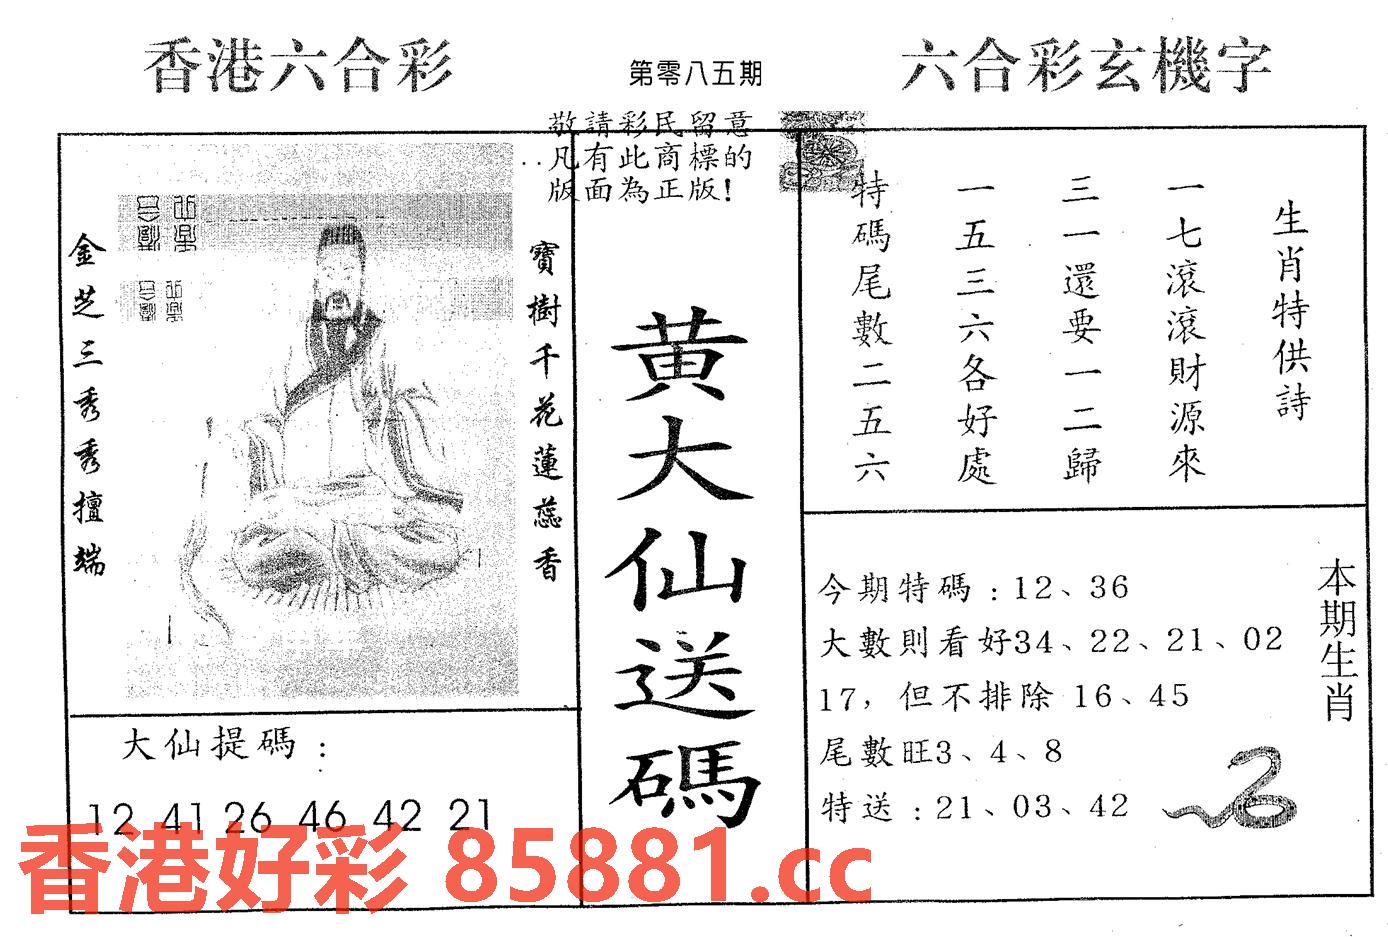 香港六合彩
第零八五期
六合彩玄機字
敬請彩民留意
凡有此商標的
版面為正版!
金芝三秀秀擅端
寶樹千花蓮蕊香
大仙提碼:
12 41 26 46 42 21
黄大仙送碼
生肖特供詩
一七滾滾財源來
三一還要一二歸
一五三六各好處
特碼尾數二五六
本期生肖
今期特碼:12、36
大數則看好34、22、21、02
17,但不排除 16、45
尾數旺3、4、8
特送:21、03、42
香港好彩 85881.cc